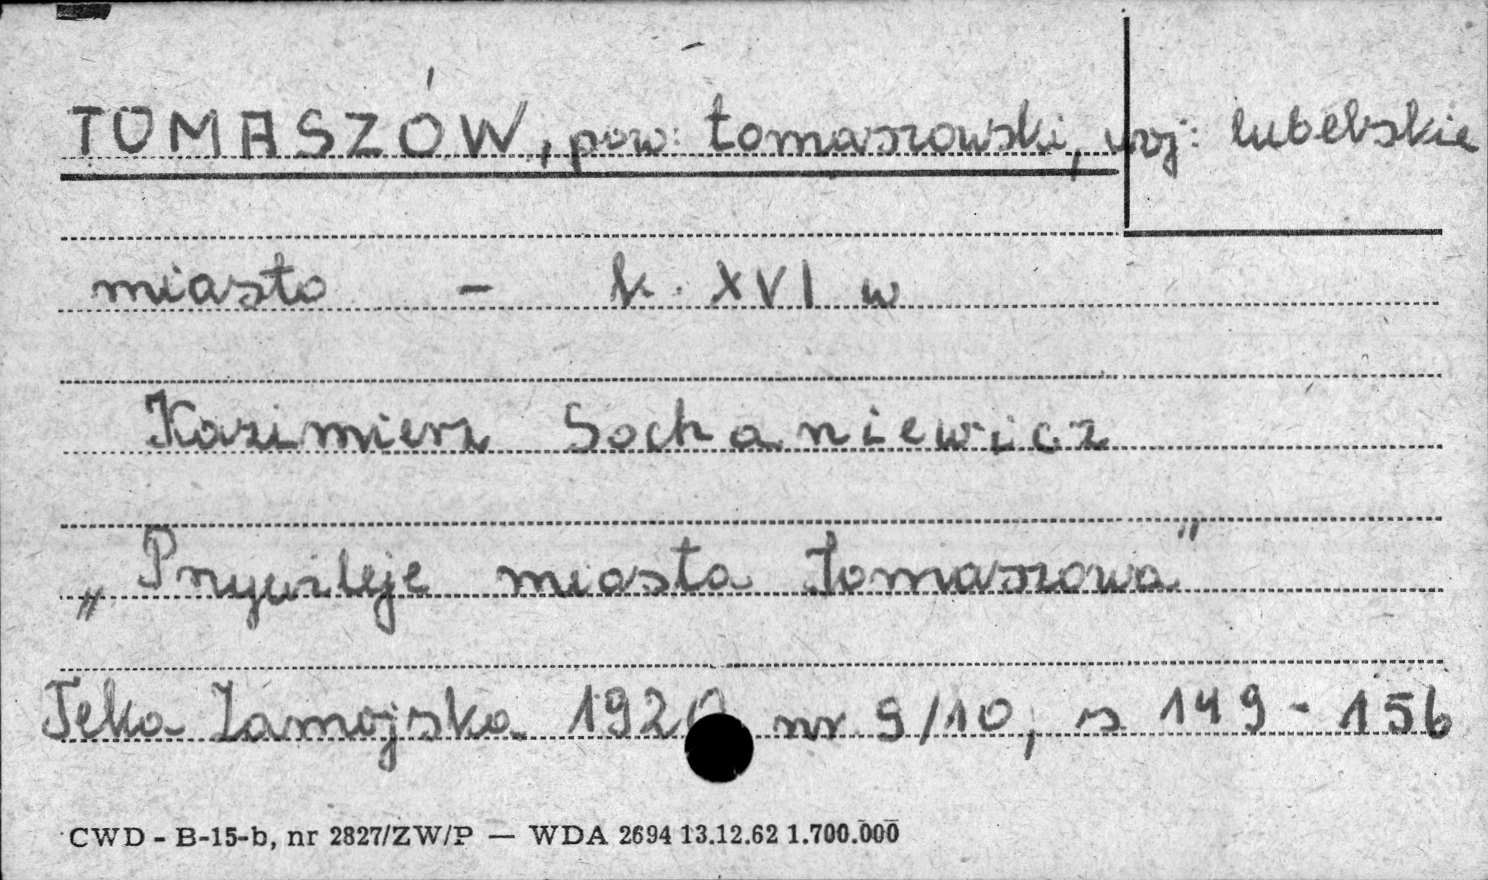 TOMASZÓW, pow: tomaszowski, woj: lubelskie
miasto - k. XVI w
Kazimierz Sochaniewicz
„Przywileje miasta Tomaszowa"
Teka Zamojska 1920 nr 9/10, s 149-156
CWD - B-15-b, nr 2827/ZW/P — WDA 2694 13.12.62 1.700.000